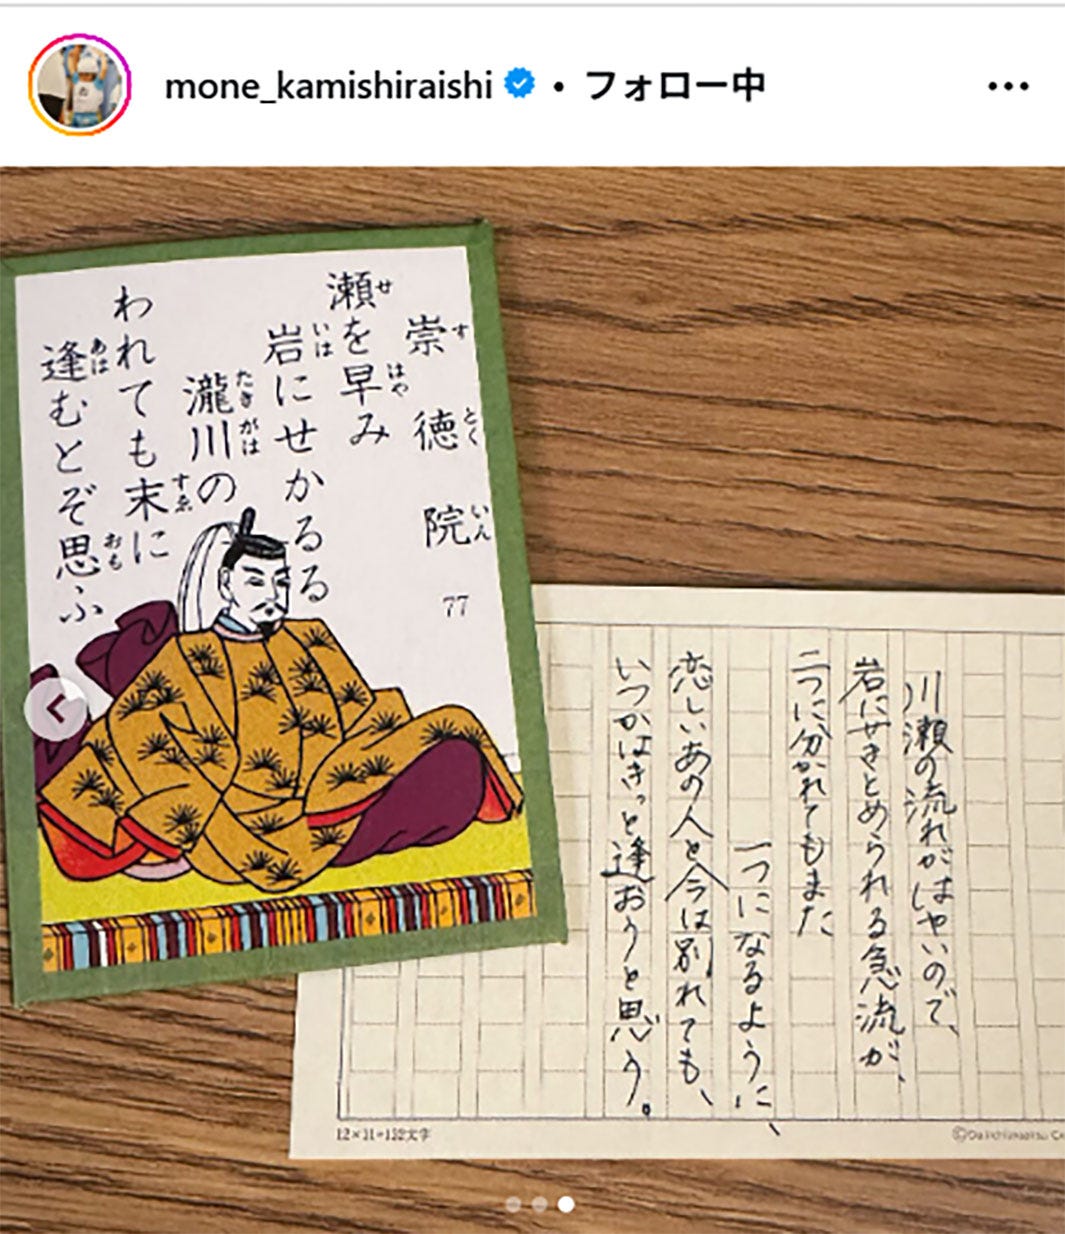 mone_kamishiraishi • フォロー中
崇徳院
すとくいん
77
瀬を早み
せはや
岩にせかるる
いは
瀧川の
たきがは
われても末に
すゑ
逢むとぞ思ふ
あはおも
川瀬の流れがはやいので、
岩にせきとめられる急流が、
二つに分かれてもまた
一つになるように、
恋しいあの人と今は別れても、
いつかはきっと逢おうと思う。
12×11=132文字